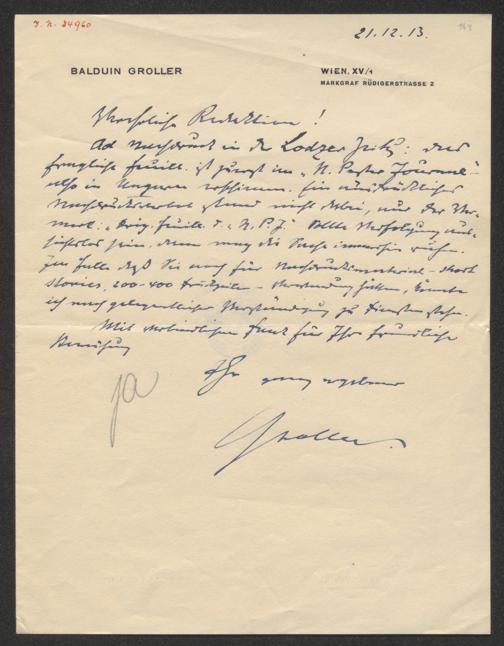 J. N. 24960
164
21.12.13.
BALDUIN GROLLER
WIEN, XV/1
MARKGRAF RÜDIGERSTRASSE 2
Verehrliche Redaktion!
Ad Nachdruck in der Lodzer Zeitg: das
fragliche Feuill. ist zuerst im „N. Pester Journal"
also in Ungarn erschienen. Ein ausdrückliches
Nachdrucksverbot stand nicht dabei, nur der Ver-
merk: „Orig. Feuill. d. „N. P. J." Sollte Verfolgung aus-
sichtslos sein, dann mag die Sache immerhin ruhen.
Im Falle daß Sie auch für Nachdrucksmaterial – short
stories, 200-400 Druckzeilen – Verwendung hätten, könnte
ich nach gelegentlicher Verständigung zu Diensten stehn.
Mit verbindlichem Dank für Ihre freundliche
Bemühung
Ihr ganz ergebener
ja
Groller.